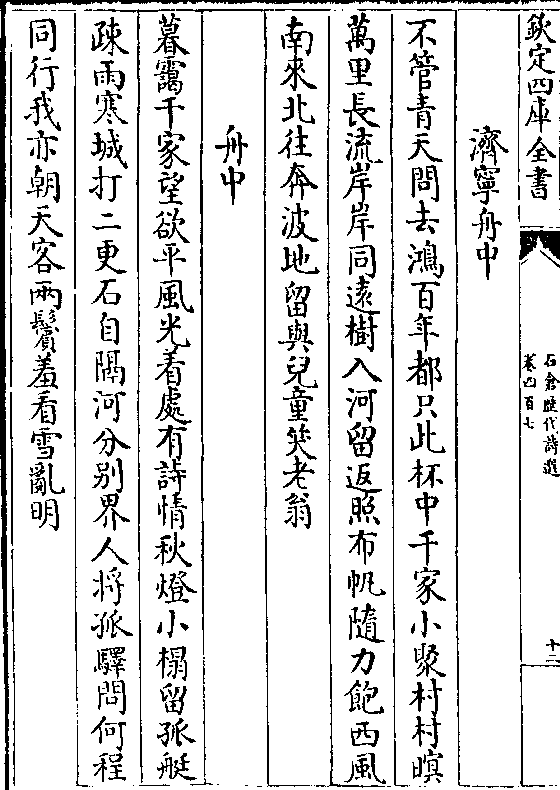 欽定四庫全書
石倉歷代詩選
卷四百七
十二
濟寧舟中
不管青天問去鴻百年都只此杯中千家小聚村村暝
萬里長流岸岸同遠樹入河留返照布帆隨力飽西風
南來北往奔波地留與兒童笑老翁
舟中
暮靄千家望欲平風光着處有詩情秋燈小榻留孤艇
疎雨寒城打二更石自隔河分別界人將孤驛問何程
同行我亦朝天客兩鬢羞看雪亂明